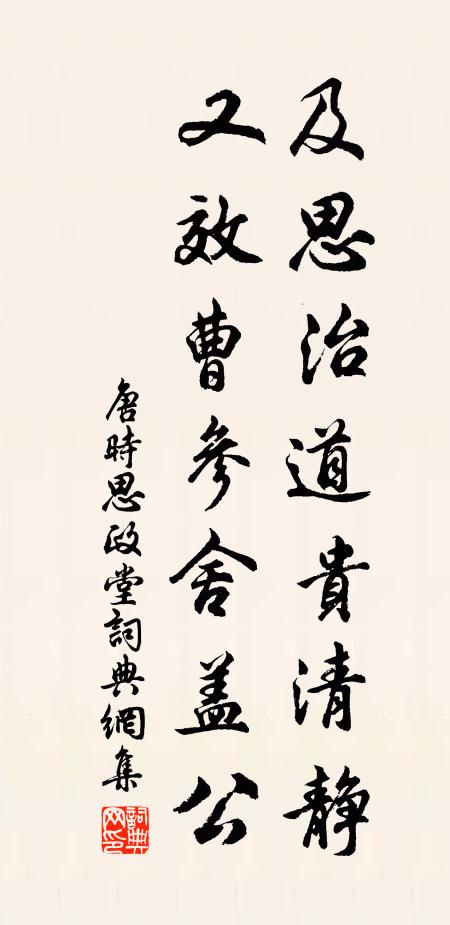 及思治道貴清静
又效曹參舍蓋公
唐時思政堂詞典網集
詞典網印